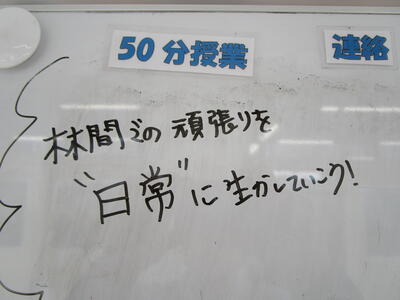 50分授業 連絡
林間での頑張りを
"日常"に生かしていこう!